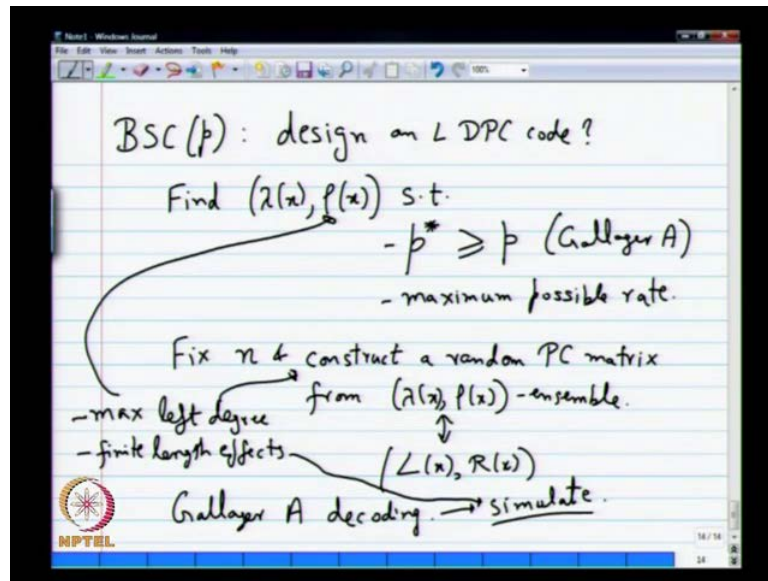 Note1 - Windows Journal
File Edit View Insert Actions Tools Help
100%
BSC(p): design an LDPC code?
Find (λ(x), ρ(x)) s.t.
- p* ⩾ p (Gallager A)
- maximum possible rate.
Fix n & construct a random PC matrix
from (λ(x), ρ(x)) - ensemble.
- max left degree
- finite length effects
(L(x), R(x))
Gallager A decoding. → simulate.
NPTEL
14 / 14
14